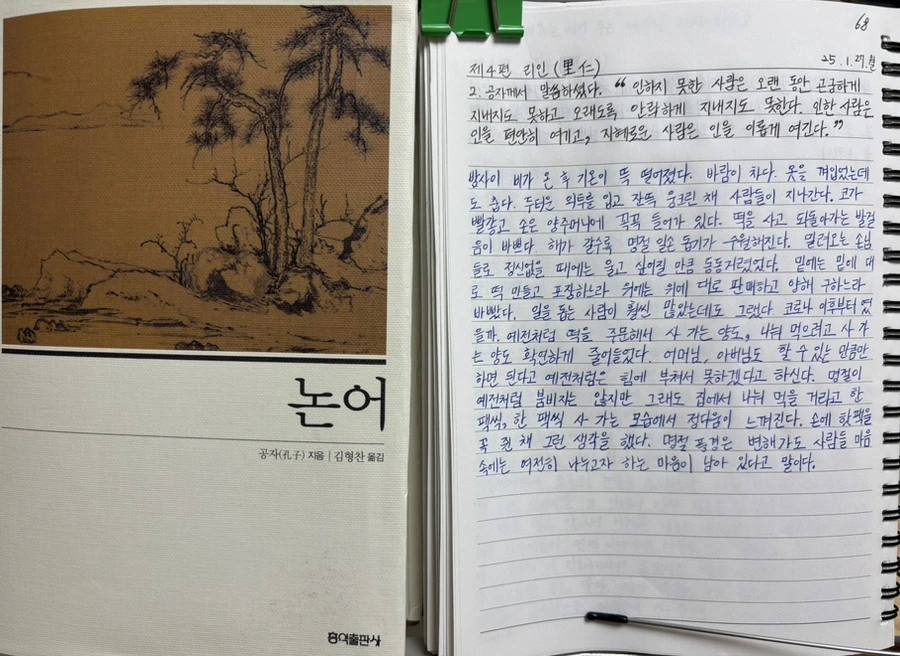 논어
공자(孔子) 지음 | 김형찬 옮김
홍익출판사
68
25.1.27.월
제4편 리인(里仁)
2. 공자께서 말씀하셨다. “인하지 못한 사람은 오랜 동안 곤궁하게
지내지도 못하고 오래도록 안락하게 지내지도 못한다. 인한 사람은
인을 편안히 여기고, 지혜로운 사람은 인을 이롭게 여긴다.”
밤사이 비가 온 후 기온이 뚝 떨어졌다. 바람이 차다. 옷을 껴입었는데
도 춥다. 두터운 외투를 입고 잔뜩 웅크린 채 사람들이 지나간다. 코가
빨갛고 손은 양주머니에 꼭꼭 들어가 있다. 떡을 사고 되돌아가는 발걸
음이 바쁘다 해가 갈수록 명절 일손 돕기가 수월해진다. 밀려오는 손님
들로 정신없을 때에는 울고 싶어질 만큼 동동거렸었다. 밑에는 밑에 대
로 떡 만들고 포장하느라 위에는 위에 대로 판매하고 양해 구하느라
바빴다. 일을 돕는 사람이 훨씬 많았는데도 그랬다 코로나 이후부터 였
을까. 예전처럼 떡을 주문해서 사 가는 양도, 나눠 먹으려고 사 가
는 양도 확연하게 줄어들었다. 어머님, 아버님도 할 수 있는 만큼만
하면 된다고 예전처럼은 힘에 부쳐서 못하겠다고 하신다. 명절이
예전처럼 붐비지는 않지만 그래도 집에서 나눠 먹을 거라고 한
팩씩, 한 팩씩 사 가는 모습에서 정다움이 느껴진다. 손에 핫팩을
꼭 쥔 채 그런 생각을 했다. 명절 풍경은 변해가도 사람들 마음
속에는 여전히 나누고자 하는 마음이 남아 있다고 말이다.